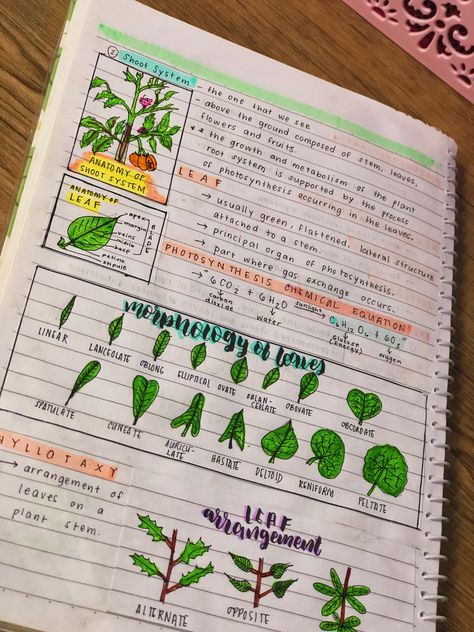 ② Shoot System
- the one that we see
- above the ground composed of stem, leaves,
flowers and fruits.
** the growth and metabolism of the plant
root system is supported by the process
of photosynthesis occurring in the leaves.
ANATOMY OF
SHOOT SYSTEM
LEAF
→ usually green, flattened, lateral structure
attached to a stem.
→ principal organ of photosynthesis.
→ part where gas exchange occurs.
ANATOMY OF
LEAF
apex
margin
veins
midrib
base
petiole
stipule
BLADE
PHOTOSYNTHESIS CHEMICAL EQUATION
→ "6 CO2 + 6H2O sunlight→ C6H12O6 + 6O2"
carbon
dioxide
water
glucose
(energy)
oxygen
morphology of leaves
LINEAR
LANCEOLATE
OBLONG
ELLIPTICAL
OVATE
OBLAN-
CEOLATE
OBOVATE
OBCORDATE
SPATULATE
CUNEATE
AURICU-
LATE
HASTATE
DELTOID
RENIFORM
PELTATE
HYLLOTAXY
→ arrangement of
leaves on a
plant stem.
LEAF
arrangement
ALTERNATE
OPPOSITE